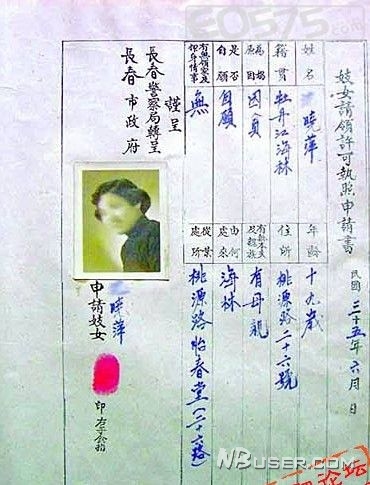 妓女請領許可執照申請書
民國三十五年六月 日
姓名 曉萍 年齡 十九歲
籍貫 牡丹江海林 住所 桃源路二十六號
為娼原因 因貧 有無本夫及親族 有母親
是否自願 自願 由何處來 海林
有無領家及押身情事 無 從業處所 桃源路怡春堂
謹呈
長春警察局轉呈
長春市政府
申請妓女 曉萍
印
NBUSER.COM
论坛